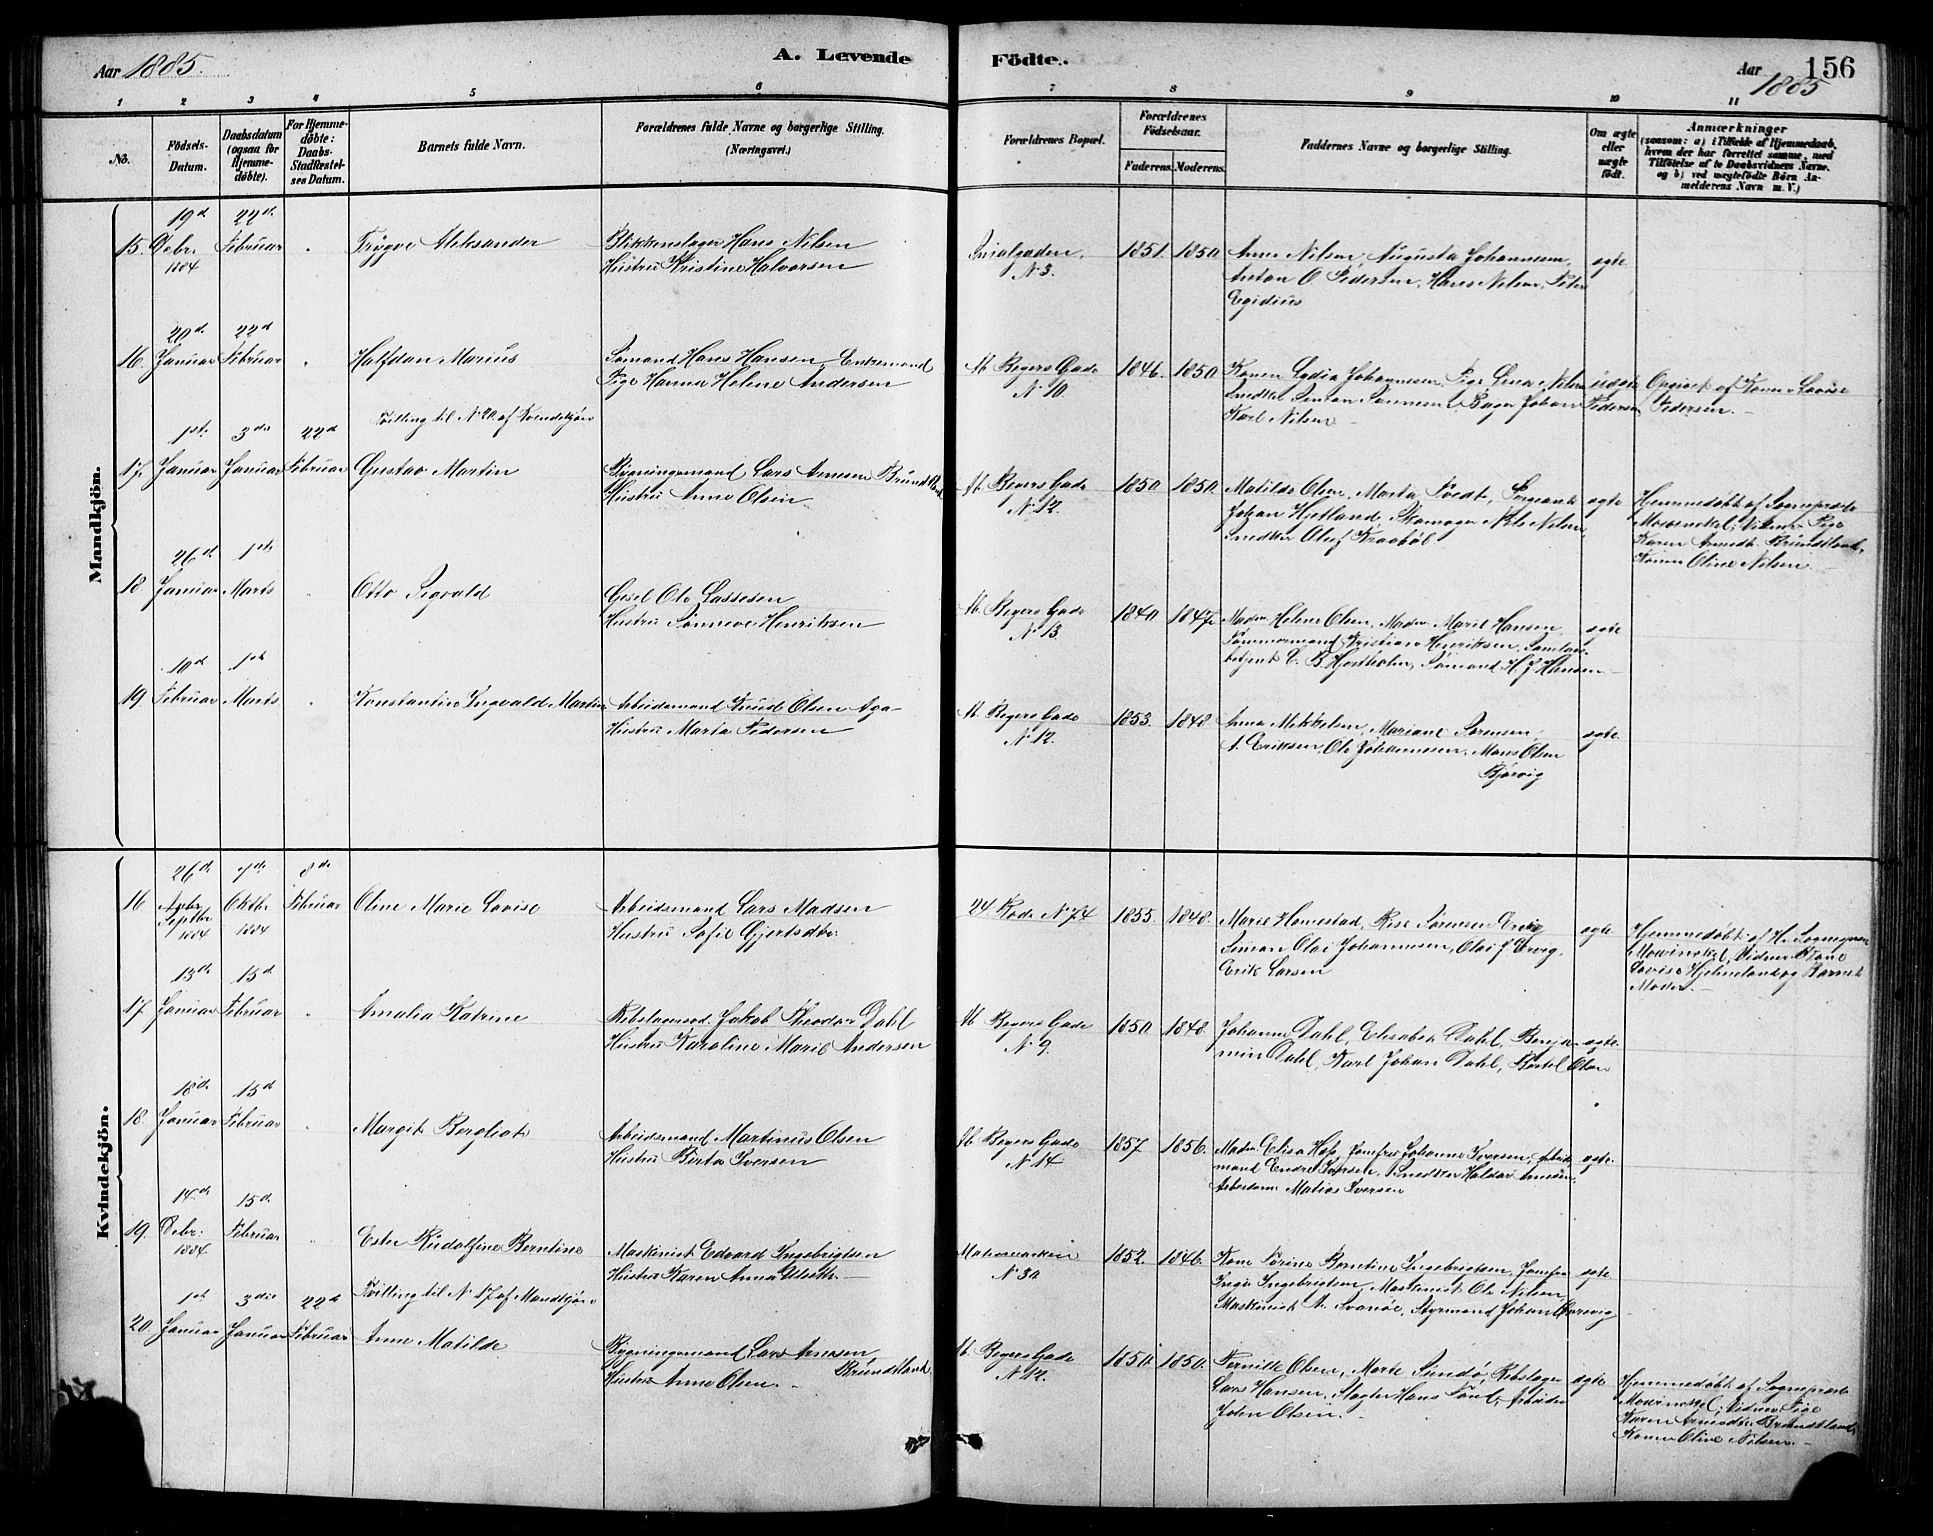 Aar 1885.
A. Levende
Födte.
Aar 1885
156
1 2 3 4 5 6 7 8 9 10 11
No.
Födsels-Datum.
Daabsdatum (ogsaa for Hjemme-döbte).
For Hjemme-döbte: Daabs-Stadfæstelses Datum.
Barnets fulde Navn.
Forældrenes fulde Navne og borgerlige Stilling. (Næringsvei.)
Forældrenes Bopæl.
Forældrenes Födselsaar.
Faderens. Moderens.
Faddernes Navne og borgerlige Stilling.
Om ægte eller uægte födt.
Anmærkninger
(saasom: a) i Tilfælde af Hjemmedaab,
hvem der har forrettet samme, med
Tilföielse af to Daabsvidners Navne,
og b) ved uægtefödte Börn An-
melderens Navn m. V.)
Mandkjön.
19d 22d
15. Debr. 1884 Februar Trygve Aleksander
Blikkenslager Hans Nilsen
Hustru Kristine Halvorsen
N 3.
1851. 1850.
Anne Nilsen, Augusta Johannesen,
Anton O Pedersen, Hans Nilsen, Peter
Egidius
ægte
20d 22d
16. Januar Februar Halfdan Marius
Sömand Hans Hansen Enkemand
Pige Hanna Helene Andersen
M. Beyers Gade
N 10.
1846. 1850
Konen Lydia Johannesen, Pige Lena Nilsen
Snedker Simon Sörensen, Bager Johan Pedersen,
Karl Nilsen
uægte
Opgivet af Konen Lovise
Pedersen.
Tvilling til N 20 af Kvindekjön
1st 3die 22d
17. Januar Januar Februar Gustav Martin
Bygningsmand Lars Arnesen Brundtland
Hustru Anne Olsen
M. Beyers Gade
N 12.
1850 1850.
Matilde Olsen, Marta Tvedt, Sergeant
Johan Hjetland, Skomager Nils Nilsen,
Snedker Oluf Kraabøl
ægte
Hjemmedöbt af Sognepræst
Mowinckel, Vidner Pige
Karen Arnesdtr. Brundtland,
Konen Oline Nilsen.
26d 1st
18. Januar Marts Otto Sigvald
Gesel Ole Lassesen
Hustru Sönneve Henriksen
M. Beyers Gade
N 13
1840 1847.
Madm Helene Olsen, Madm. Marie Hansen,
Tømmermand Kristian Henriksen,
betjent C. B. Hjortholm, Sömand H J Hansen
ægte
10d 1st
19 Februar Marts Konstantin Ingvald Martin
Arbeidsmand Knud Olsen Aga
Hustru Marta Pedersen
M. Beyers Gade
N 12.
1853. 1848
Anna Mikkelsen, Mariane Sörensen,
A. Eriksen, Ole Johannesen, Mons Olsen
Bjørvig
ægte.
Kvindekjön.
26d 7de 8de
16 Septbr 1884 Oktbr. 1884 Februar Oline Marie Lovise
Arbeidsmand Lars Madsen
Hustru Sofie Gjertsdtr.
24 Rode N 74
1855. 1848.
Marie Hovestad, Sörensen
Simon Olai Johannesen, Olai J
Erik Larsen
ægte
Hjemmedöbt af H. Sognepræst
Mowinckel, Vidner Kone
Lovise Hjelmeland og Barnets
Moder.
13de 15d
17. Januar Februar Amalia Katrine
Rebslagersvd. Jakob Theodor Dahl
Hustru Karoline Marie Andersen
M Beyers Gade
N 9.
1850 1848.
Johanne Dahl, Elisabet Dahl, Benja-
min Dahl, Karl Johan Dahl, Bertel Olsen
ægte.
18de 15d
18. Januar Februar Margit Bergliot
Arbeidsmand Martinus Olsen
Hustru Berta Iversen
M Beyers Gade
N 14.
1857. 1856.
Madm. Elisa Hop, Jomfru Johanne Iversen, Arbeids
mand Endre Iversen, Snedker Haldor Arnesen,
Arbeidsm Matias Iversen
ægte.
14de 15d
19. Debr. 1884 Februar Ester Rudolfine Berntine
Maskinist Edvard Ingebrigtsen
Hustru Karen Anna
N 30
1852. 1846.
Kone Sörine Berntine Ingebrigtsen, Jomfru
Inga Ingebrigtsen, Maskinist Ole Nilsen,
Maskinist A. Svanöe, Styrmand Johan
ægte
Tvilling til N 17 af Mandkjön
1st 3die 22d
20. Januar Januar Februar Anne Matilde
Bygningsmand Lars Arnesen
Brundtland
Hustru Anne Olsen.
M. Beyers Gade
N 12.
1850 1850.
Pernille Olsen, Marte Sundö, Rebslager
Lars Hansen, Slagter Hans Arbeider
John Olsen.
ægte
Hjemmedöbt af Sognepræst
Mowinckel, Vidner Pige
Karen Arnesdtr. Brundtland,
Konen Oline Nilsen.